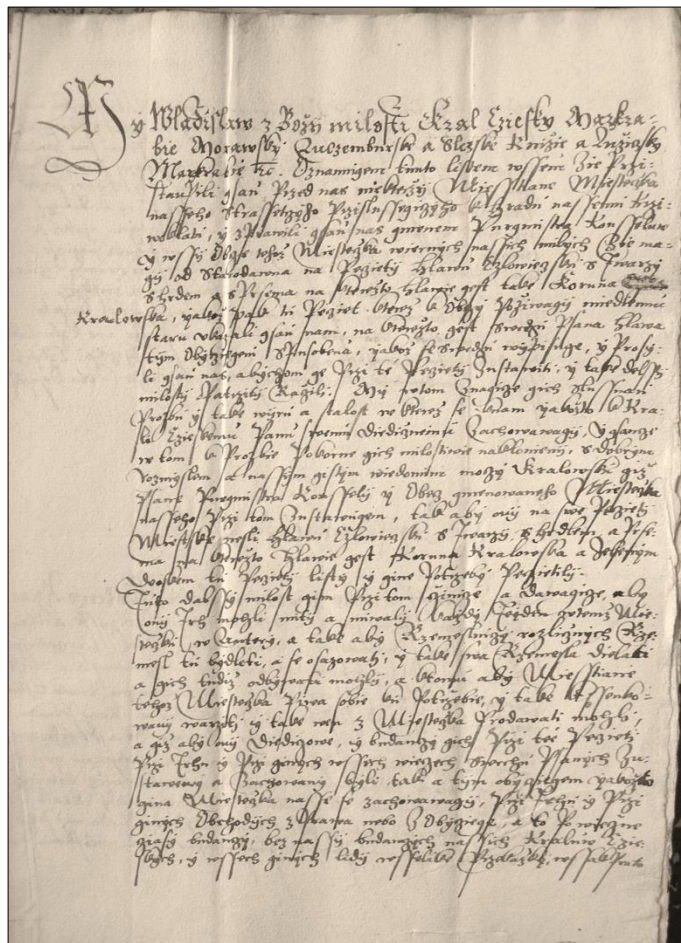 My Wladislaw z Božy milosti Kral Cžesky Markra-
bie Morawsky Luczemburske a Slezske Kniže a Lužiczky
Markrabie etc. Oznamugem tiemto listem wssem Zie Przi-
stupili gsau Przed nas niekterzy Miesstiane Miesteczka
nasseho Strasseczyho Przislussegiczyho k Hradu nassemu
y zprawili gsau nas gmenem Purgmistra Konsseluw
y wssy Obcze tehož Miesteczka wiernych nassich milych Zie ma-
gy od Starodawna na Peczieti Hlawu Cžlowieczsku s Twarzy
s Hrdlem a s Prsema na kterežto Hlawie gest take Koruna
Kralowska, yakož pak tu Peczet kterež k Obczy Požiwagy
staru ukazali gsau nam, na kterežto gest swrchu Psana Hlawa
tym Obyczegem Spusobena, yakož se swrchu wypisuge, y Prosy-
li gsau nas, abychom ge Przi te Peczieti Zustawili, y take dalssy
milosti Raczili. My w tom znagicze gich slussnau
Prozbu y take wieru a stalost w kterež se k nam yakožto k Kra-
li Cžieskemu Panu swemu Diedicznemu Zachowawagy, y gsaucze
w tom k Prozbie Poborne gich milostiwie naklonieni, s dobrym
rozmyslem a nassym gistym wiedomim moczy Kralowsku již
Psane Purgmistra Konssely y Obecz gmenowaneho Miesteczka
nasseho Przi tom Zustawugem, tak aby ony na swe Peczieti
Miestske nesli Hlawu Cžlowieczsku s Twarzy, s Hrdlem a Prse-
ma na kterežto Hlawie gest Koruna Kralowska a Zelenym
Woskem tu Peczieti listy y gine Potrzeby Peczietily.
Tuto dalssy milost gim Przi tom cžinicze a dawagicze, aby
ony Trh mohli mity a miwaly každy Tyden w temž Mie-
steczku w Autery, a take aby Rzemeslniczy rozlicznych Rze-
mesl tu bydleti, a se osazowati, y take swa Rzemesla dielati
a gich tudiž odbywati mohly, a k tomu aby Miesstiane
tehož Miesteczka Piwa sobie ku Potrzebie, y take k Ssenko-
wany warzyli y take wen z Miesteczka Prodawati mohli,
a giž aby ony Diediczowe, y buducy gich Przi tee Peczieti
Przi Trhu y Przi ginych wssech wieczech swrchu Psanych Zu-
staweny a Zachowany byli tak a tym obyczegem yakožto
gina Miesteczka nasse se zachowawagy, Przi Trhu y Przi
ginych Obchodych z Prawa nebo z Obyczege, a to Po wieczne
cziasy buduczy, bez nassy buduczych nassich Kraluw Cžie-
skych, y wssech ginych lidy wsselike Przekažky, wssak